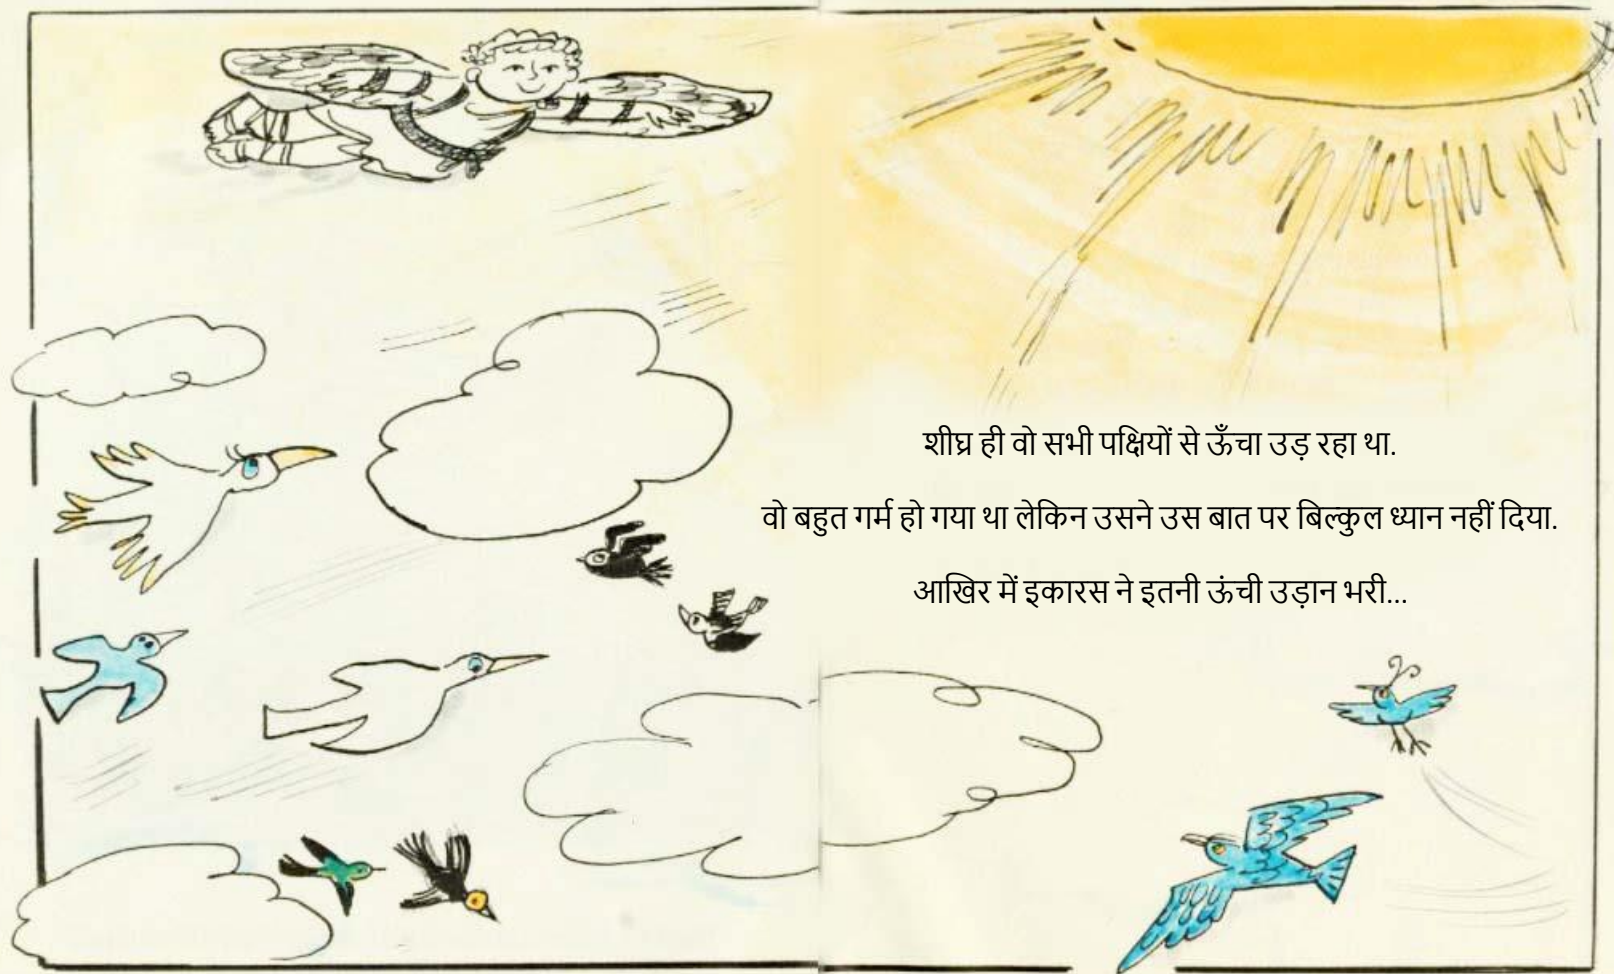 शीघ्र ही वो सभी पक्षियों से ऊँचा उड़ रहा था.
वो बहुत गर्म हो गया था लेकिन उसने उस बात पर बिल्कुल ध्यान नहीं दिया.
आखिर में इकारस ने इतनी ऊंची उड़ान भरी...